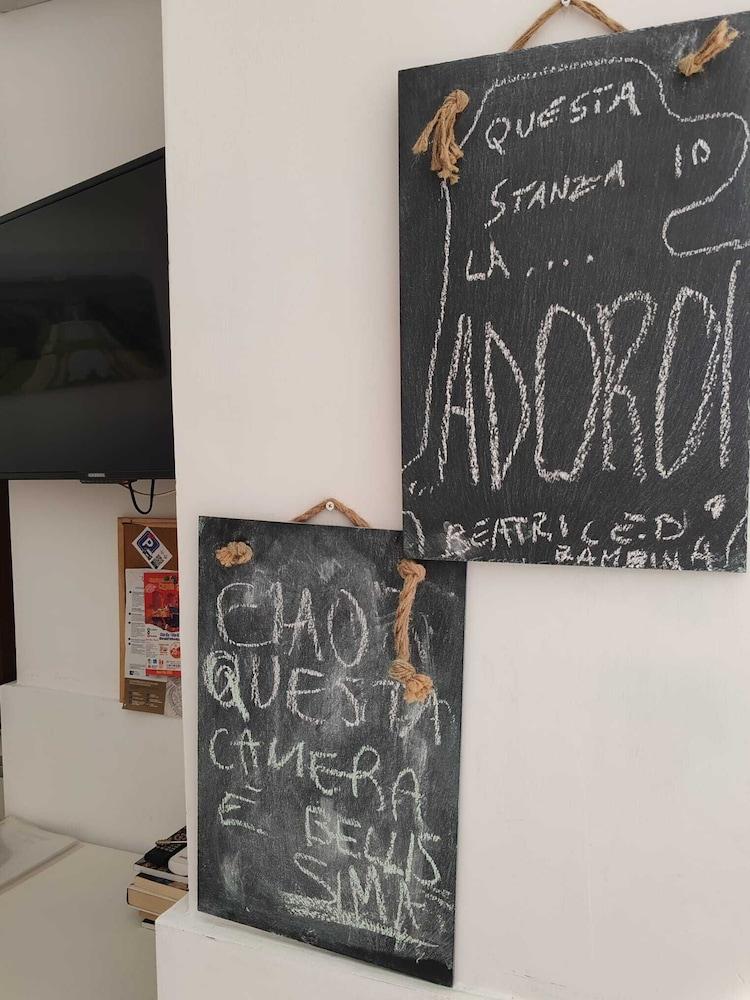 QUESTA
STANZA
IO
LA ....
ADORO!
BEATRICE D
BAMBINA
CIAO
QUESTA
CAMERA
È BELLIS
SIMA
P